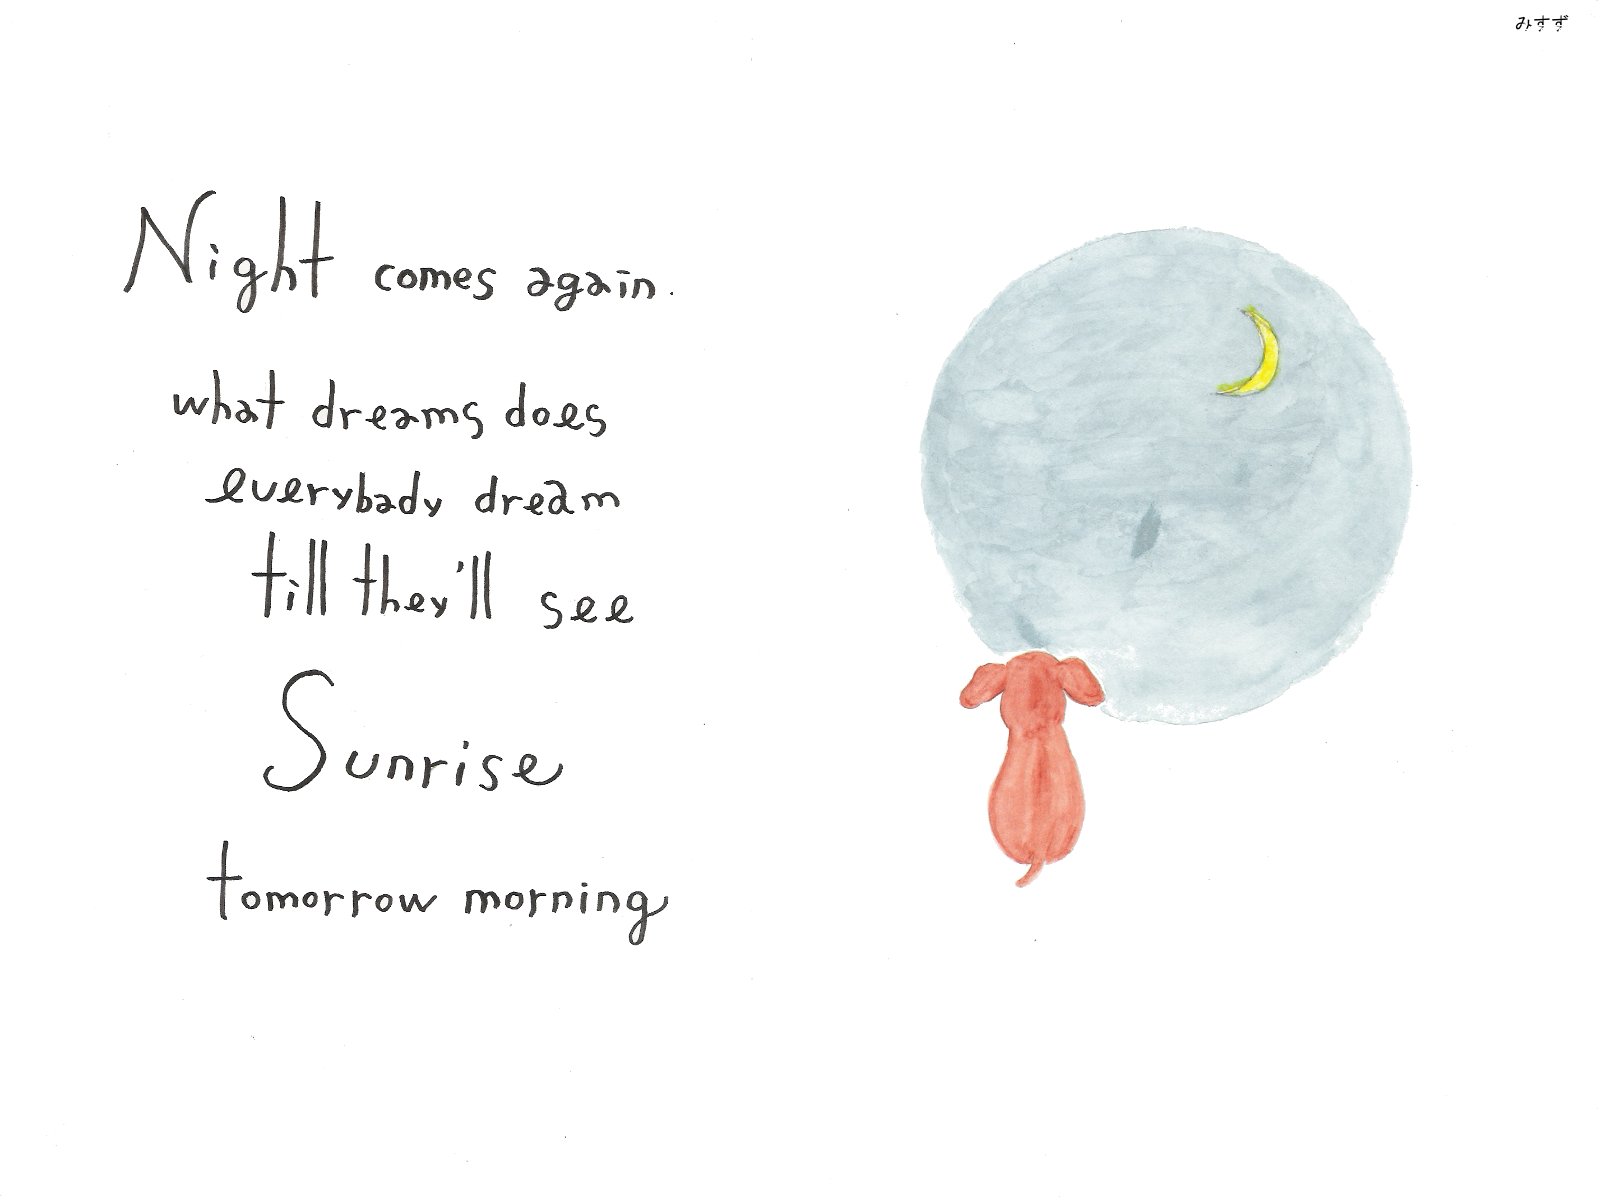 みすず
Night comes again.
what dreams does
everybady dream
till they'll see
Sunrise
tomorrow morning